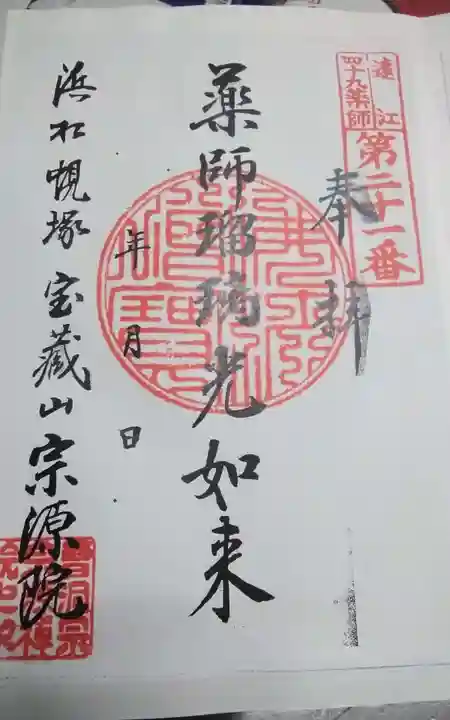 遠江
四十九薬師
第二十一番
奉拝
薬師瑠璃光如来
年 月 日
浜松幌塚 宝蔵山 宗源院